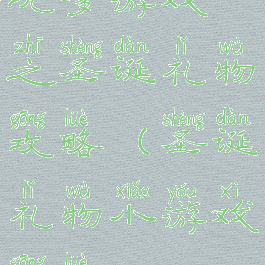 游戏
zhī shèng dàn lǐ wù
之圣诞礼物
gōng lüè shèng dàn
攻略(圣诞
lǐ wù xiǎo yóu xì
礼物小游戏
gōng lüè